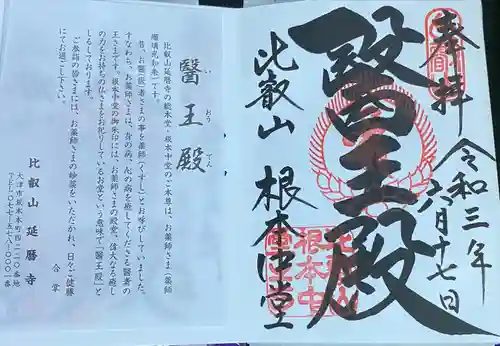 奉拝
令和三年
六月十七日
醫王殿
比叡山 根本中堂
根本中堂
醫王殿
い おう でん
比叡山延暦寺の総本堂・根本中堂のご本尊は、お薬師さま(薬師
瑠璃光如来)です。
昔、お醫(医)者さまの事を薬師(くすし)とお呼びしていました。
すなわち、お薬師さまは、身の病、心の病を癒してくださる醫者の
王さまです。根本中堂の御朱印には、お薬師さまの殿堂、偉大なる癒し
の力をお持ちの仏さまをお祀りしているお堂という意味で「醫王殿」と
しるしております。
ご参詣の皆さまには、お薬師さまの妙薬をいただかれ、日々ご健勝
にてお過ごし下さい。
合掌
比叡山延暦寺
大津市坂本本町四二二〇番地
TEL〇七七-五七八-〇〇〇一番